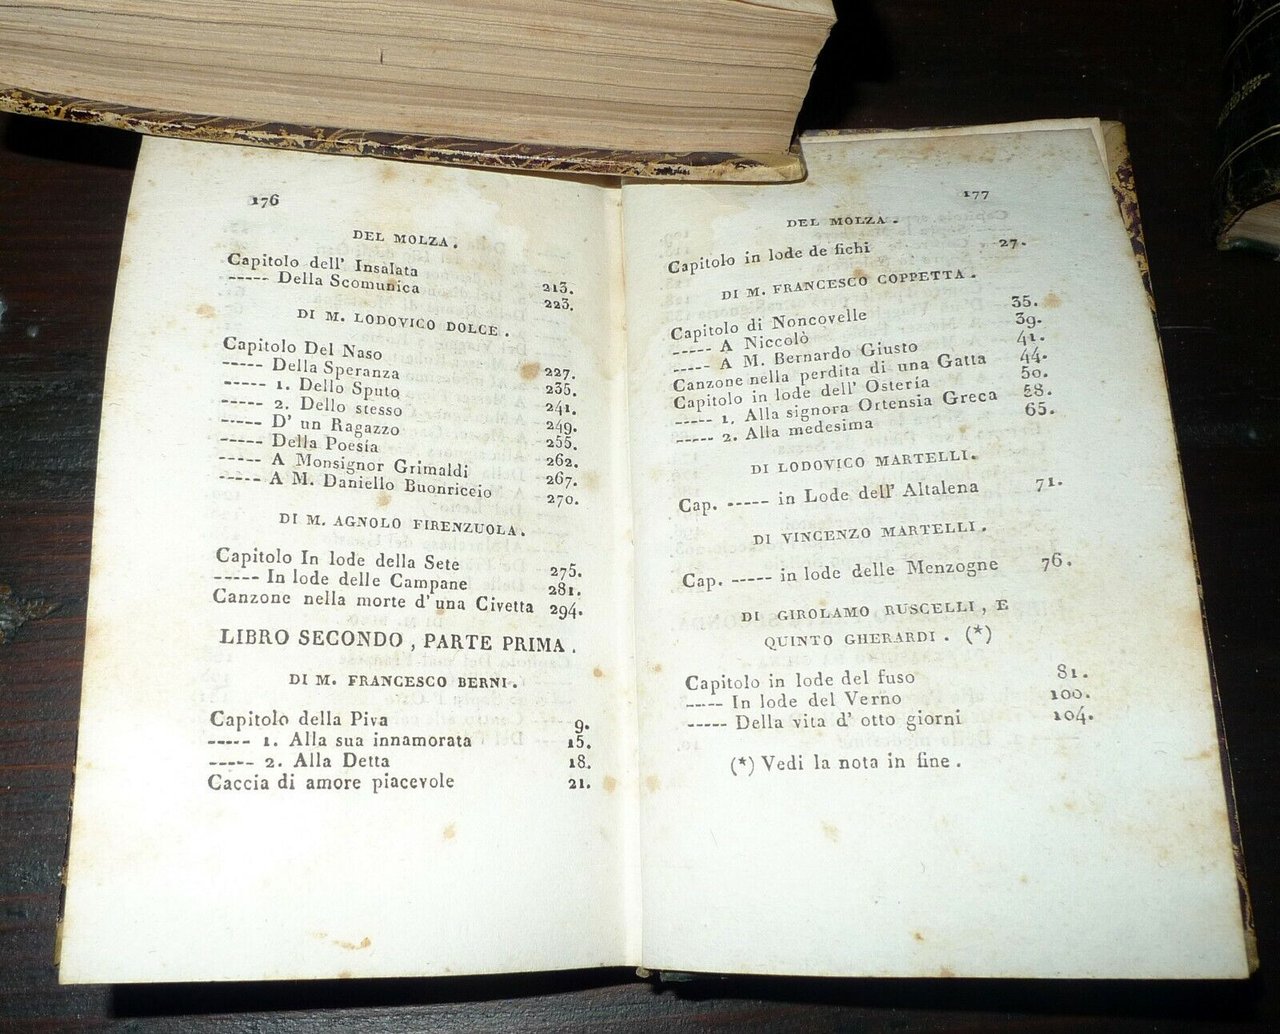 176
DEL MOLZA.
Capitolo dell' Insalata 213.
----- Della Scomunica 223.
DI M. LODOVICO DOLCE.
Capitolo Del Naso 227.
----- Della Speranza 235.
----- 1. Dello Sputo 241.
----- 2. Dello stesso 249.
----- D' un Ragazzo 255.
----- Della Poesía 262.
----- A Monsignor Grimaldi 267.
----- A M. Daniello Buonriccio 270.
DI M. AGNOLO FIRENZUOLA.
Capitolo In lode della Sete 275.
----- In lode delle Campane 281.
Canzone nella morte d' una Civetta 294.
LIBRO SECONDO, PARTE PRIMA.
DI M. FRANCESCO BERNI.
Capitolo della Piva 9.
----- 1. Alla sua innamorata 15.
----- 2. Alla Detta 18.
Caccia di amore piacevole 21.
177
DEL MOLZA.
Capitolo in lode de fichi 27.
DI M. FRANCESCO COPPETTA.
Capitolo di Noncovelle 35.
----- A Niccolò 39.
----- A M. Bernardo Giusto 41.
Canzone nella perdita di una Gatta 44.
Capitolo in lode dell' Ostería 50.
----- 1. Alla signora Ortensia Greca 58.
----- 2. Alla medesima 65.
DI LODOVICO MARTELLI.
Cap. ----- in Lode dell' Altalena 71.
DI VINCENZO MARTELLI.
Cap. ----- in lode delle Menzogne 76.
DI GIROLAMO RUSCELLI, E
QUINTO GHERARDI. (*)
Capitolo in lode del fuso 81.
----- In lode del Verno 100.
----- Della vita d' otto giorni 104.
(*) Vedi la nota in fine.